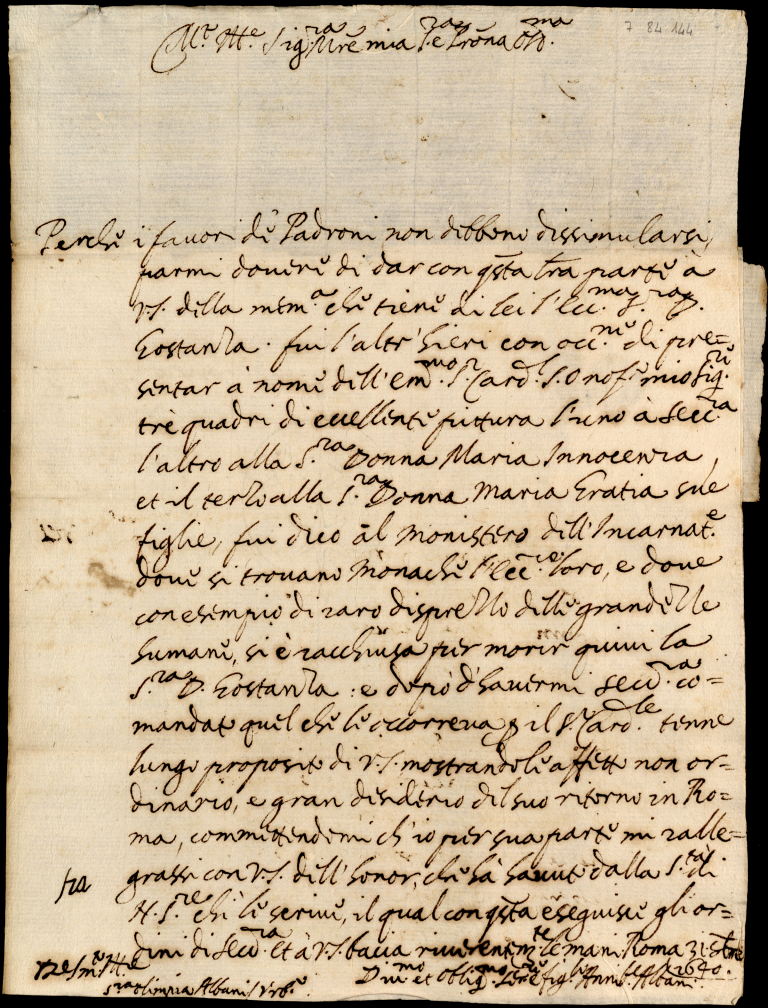 7 84 144
M.to Ill.e Sig.ra Mre mia S.ra e Prona Oss.ma
Perche i favori de Padroni non debbono dissimularsi,
parmi dovere di dar con qsta lra parte à
V.S. della mem.a che tiene di lei l'Ecc.ma S.ra D.
Costanza. fui l'altr'hieri con occ.ne di pre=
sentar à nome dell'em.mo S.r Card.l S. Onof.o mio Sig.re
trè quadri di eccellente pittura l'uno à S. Ecc.za
l'altro alla S.ra Donna Maria Innocenza,
et il terzo alla S.ra Donna Maria Gratia sue
figlie, fui dico al Monistero dell'Incarnat.e
dove si trovano Monache l'Ecc.ze loro, e dove
con esempio di raro disprezzo delle grandezze
humane, si è racchiusa per morir quivi la
S.ra D. Costanza: e dopò d'havermi S. Ecc.za co=
mandato quel che le occorreva p il S. Card.le tenne
lungo proposito di V.S. mostrandole affetto non or=
dinario, e gran desiderio del suo ritorno in Ro=
ma, commettendomi ch'io per sua parte mi ralle=
grassi con V.S. dell'honor, che hà havuto dalla S.tà di
N. S.re che le scrive, il qual con qsta eseguisco gli or=
dini di S. Ecc.za et à V.S. bacio riverentem.te le mani. Roma 21
1640.
D. V.S. m.to Ill.e
Div.mo et oblig.mo Ser.re e fig.o Annib.le Albani
S.ra Olimpia Albani Urb.o